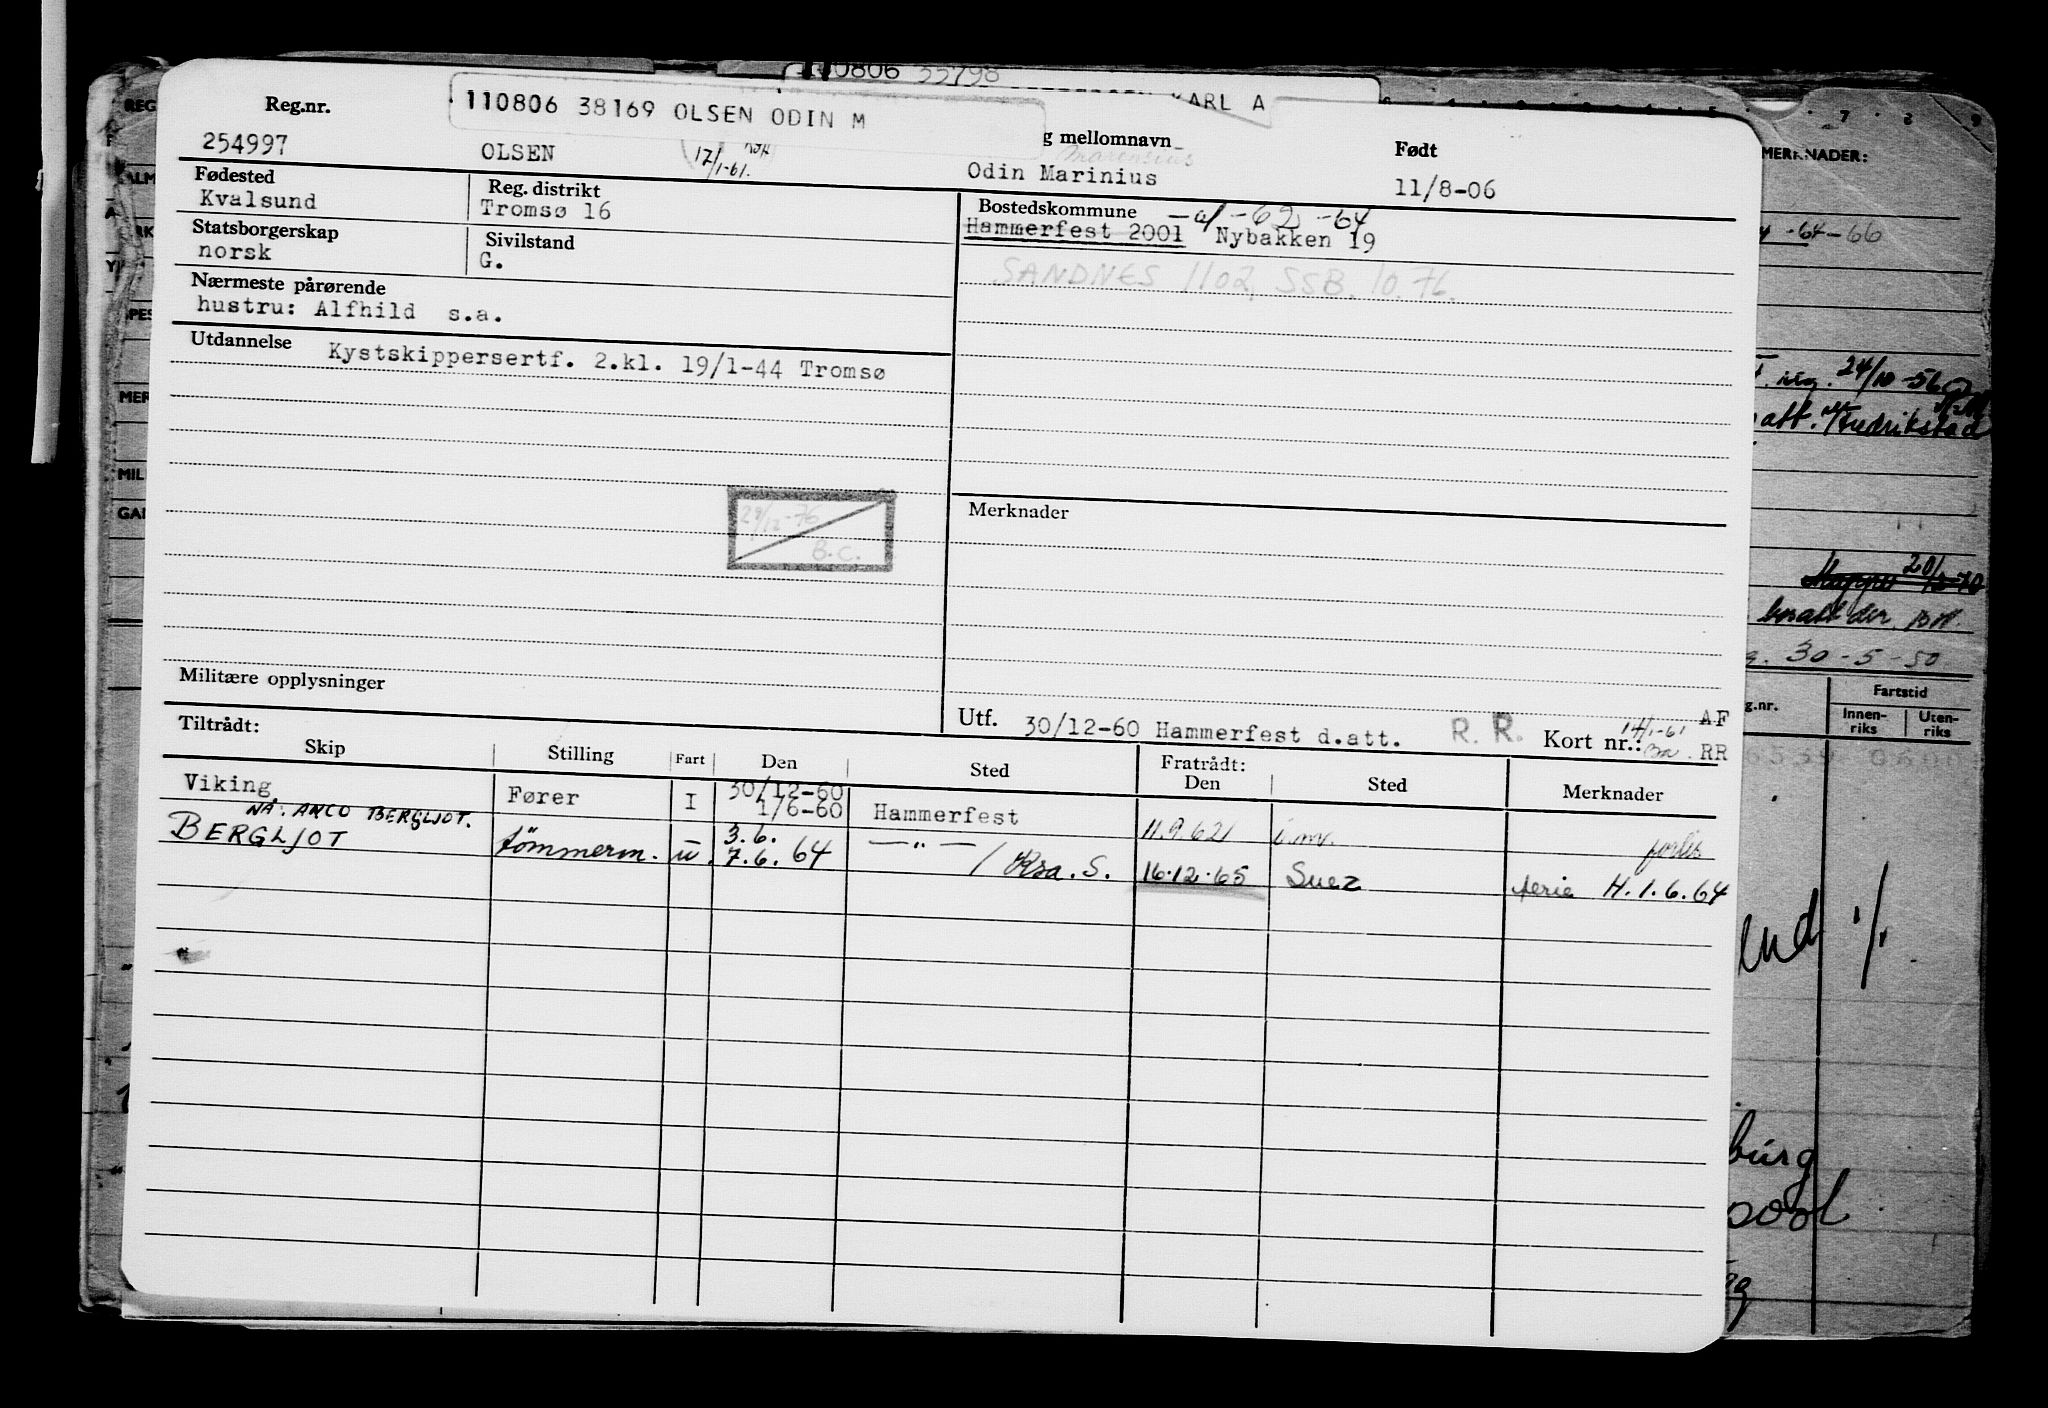 110806 35798
KARL A
110806 38169 OLSEN ODIN M
Reg.nr.
g mellomnavn
Født
254997
OLSEN
17/1-61.
Marensius
Odin Marinius
11/8-06
Fødested
Kvalsund
Reg. distrikt
Tromsø 16
Bostedskommune
-62 -64
Hammerfest 2001 Nybakken 19
SANDNES 1102, SSB. 10.76.
Statsborgerskap
norsk
Sivilstand
G.
Nærmeste pårørende
hustru: Alfhild s.a.
Utdannelse
Kystskippersertf. 2.kl. 19/1-44 Tromsø
29/12-76
B.C.
Merknader
Militære opplysninger
Utf. 30/12-60 Hammerfest d.att. R. R. Kort nr.: 14/1-61 AF
RR
Tiltrådt:
Skip Stilling Fart Den Sted
Fratrådt:
Den Sted Merknader
Viking Fører I 30/12-60
1/6-60 Hammerfest 11.9.62 i.mv. forlis
NÅ: ANCO BERGLJOT.
BERGLJOT tømmerm. u. 3.6.
7.6.64 — " — / Krsa. S. 16.12.65 Suez ferie H.1.6.64
MERKNADER:
-64-66
reg. 24/10-56
att. Fredrikstad
20/
30-5-50
g.nr.
Fartstid
Innen-
riks
Uten-
riks
burg
pool
REG
MER
MIL
GAR
7 8 9